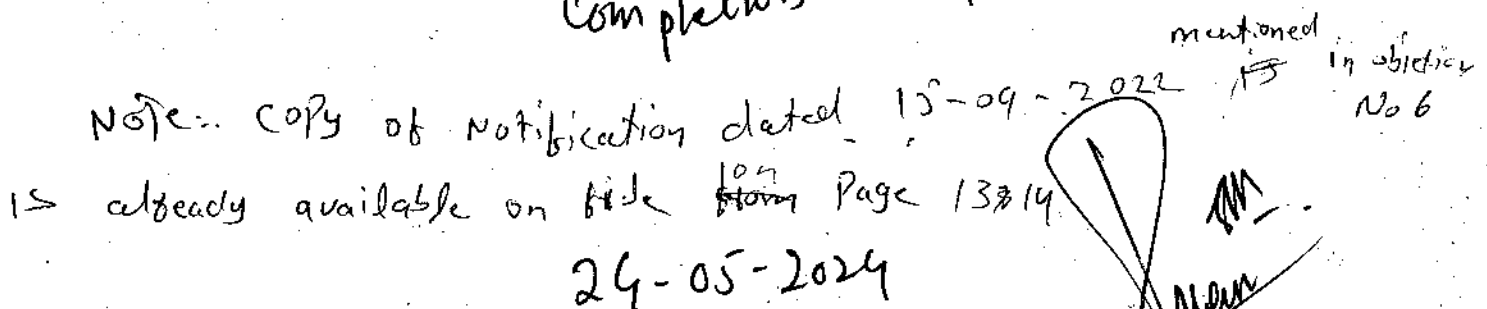 Note:. Copy of Notification dated 15-09-2022 mentioned in objection No 6
is already available on file on Page 13 & 14
24-05-2024